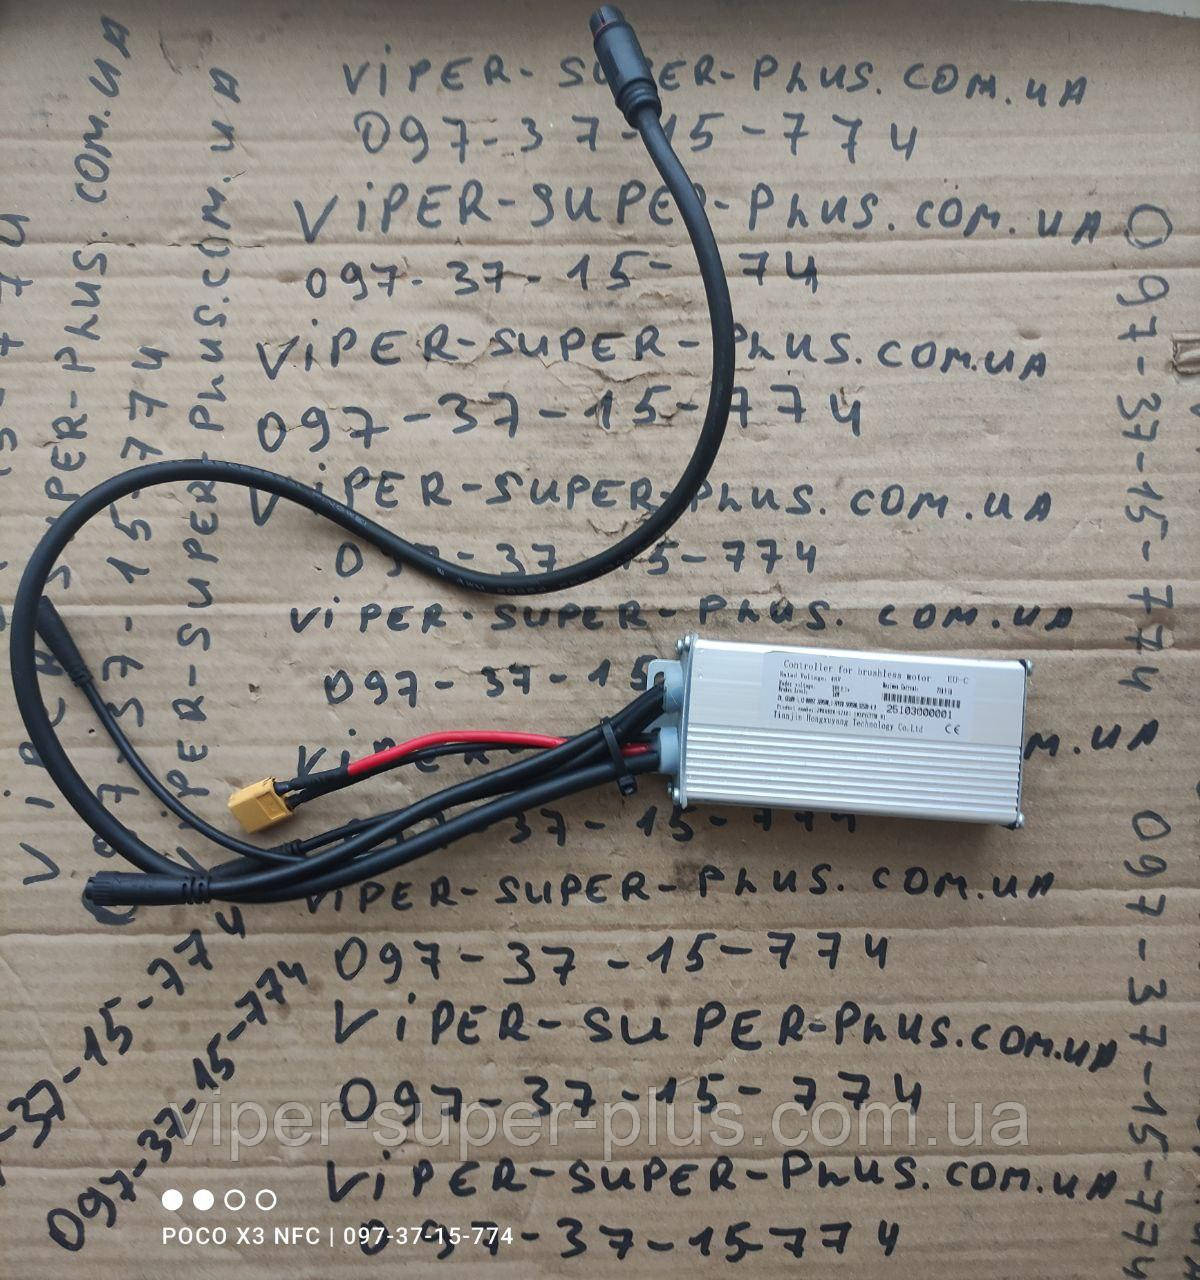 ViPER-SUPER-PLUS.COM.UA
097-37-15-774
ViPER-SUPER-PLUS.COM.UA
097-37-15- 74
ViPER-SUPER-PLUS.COM.UA
097-37-15-774
ViPER-SUPER-PLUS.COM.UA
37 15-774
ViPER-SUPER-PLUS.COM.UA
097-37-15
Controller for brushless motor EU-C
Rated Voltage: 48V
25103000001
Tianjin Hongxuyang Technology Co.Ltd CE
37-15-774
ViPER-SUPER-PLUS.COM.UA
097-37-15-774
ViPER-SUPER-PLUS.COM.UA
097-37-15-774
viper-super-plus.com.ua
ViPER-SUPER-PLUS.COM.UA
097-37-15-774
POCO X3 NFC | 097-37-15-774
097-37-15-774
097-37-15-774
-37-15-774
097-37-15-774
ViPER-SUPER-PLUS.COM.UA